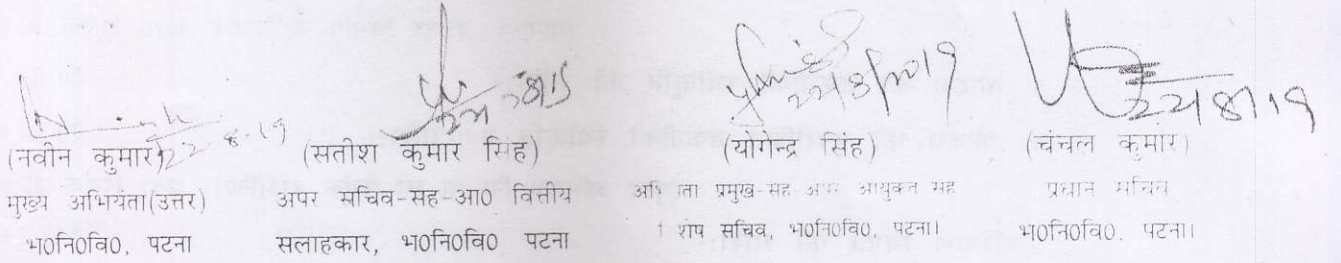 22.8.19
22/8/2019
22/8/19
(नवीन कुमार)
मुख्य अभियंता(उत्तर)
भ0नि0वि0, पटना
(सतीश कुमार सिंह)
अपर सचिव-सह-आ0 वित्तीय
सलाहकार, भ0नि0वि0 पटना
(योगेन्द्र सिंह)
प्रमुख-सह-अपर आयुक्त सह
सचिव, भ0नि0वि0, पटना।
(चंचल कुमार)
प्रधान सचिव
भ0नि0वि0. पटना।